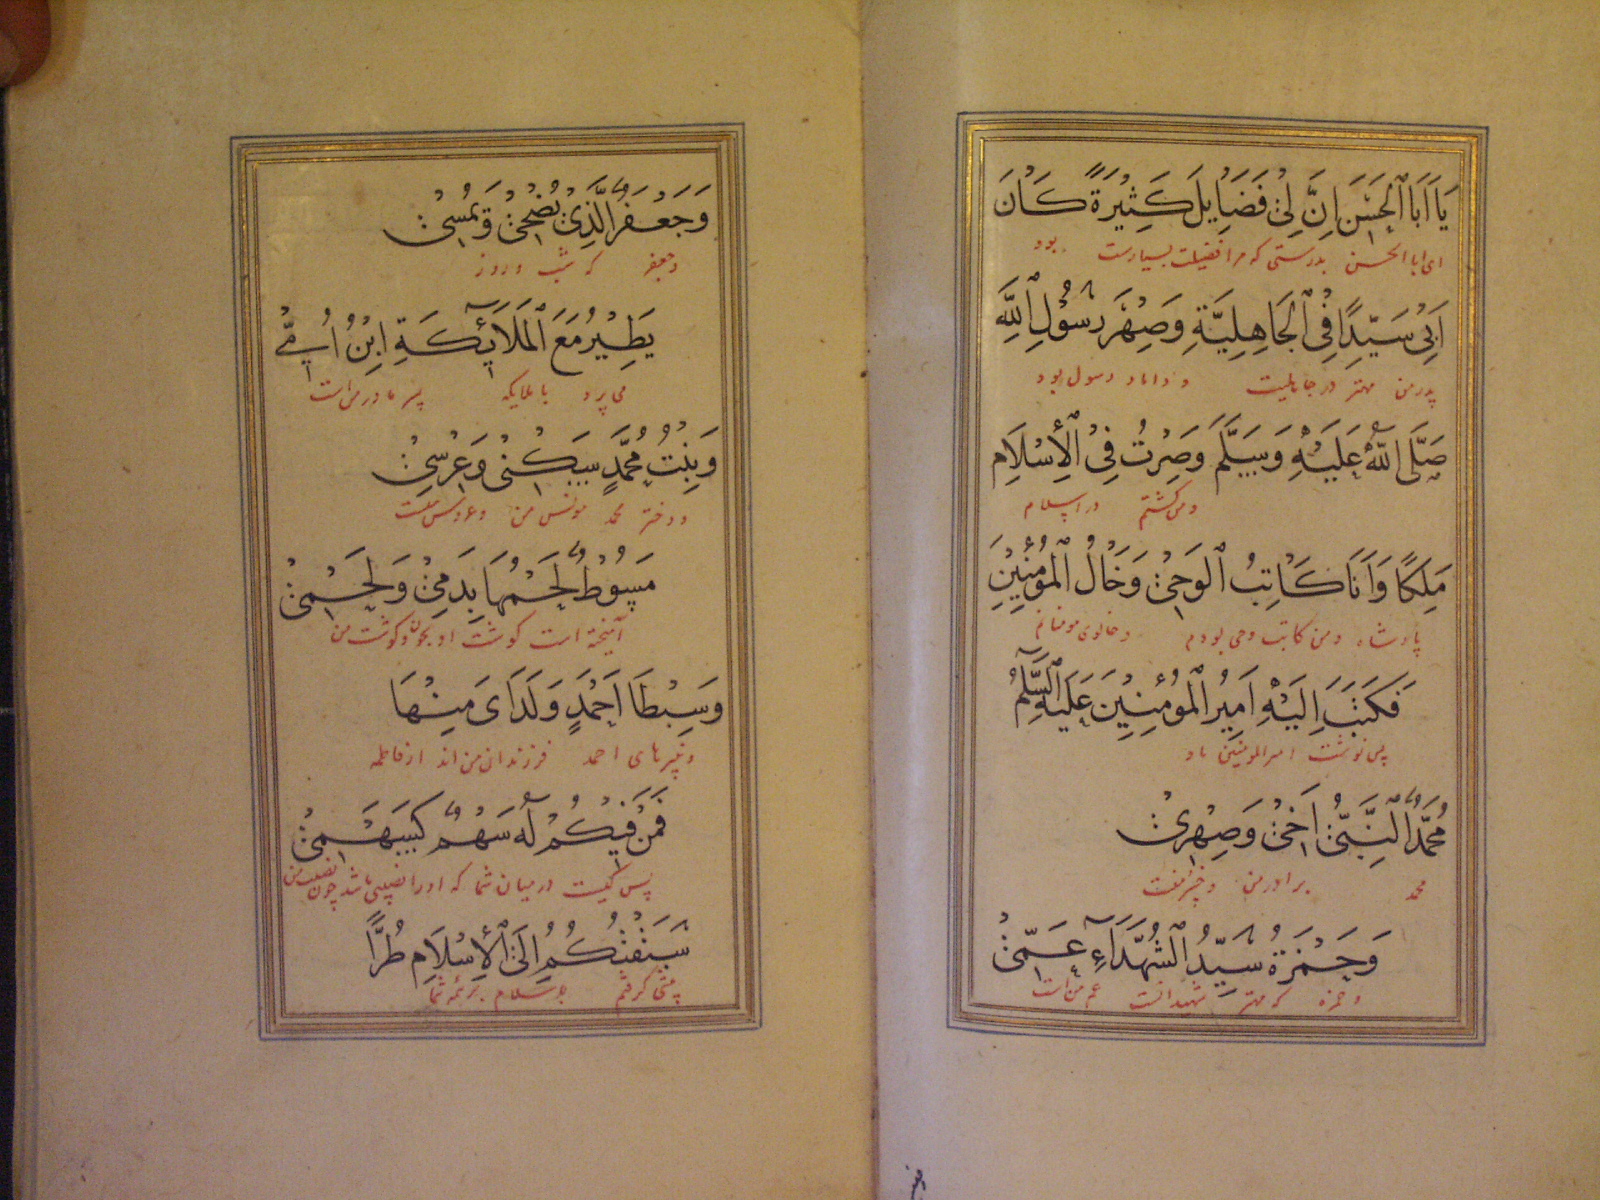 يَا اَبَا ٱلْحَسَنِ اِنَّ لِيْ فَضَايِلَ كَثِيْرَةً كَانَ
ای ابا الحسن بدرستی که مرا فضیلت بسیارست بود
اَبِيْ سَيِّدًا فِي ٱلْجَاهِلِيَّةِ وَصِهْرَ رَسُوْلِ ٱللّٰهِ
پدر من مهتر در جاهلیت و داماد رسول بود
صَلَّى اللّٰهُ عَلَيْهِ وَسَلَّمَ وَصِرْتُ فِيْ ٱلْاِسْلَامِ
و من گشتم در اسلام
مَلِكًا وَاَنَا كَاتِبُ ٱلْوَحْيِ وَخَالُ ٱلْمُؤْمِنِيْنَ
پادشاه و من کاتب وحی بودم و خالوی مومنانم
فَكَتَبَ اِلَيْهِ اَمِيْرُ ٱلْمُؤْمِنِيْنَ عَلَيْهِ ٱلسَّلَٰمُ
پس نوشت امیر المومنین باو
مُحَمَّدُ ٱلنَّبِيُّ اَخِيْ وَصِهْرِيْ
محمد برادر من و خسر منست
وَحَمْزَةُ سَيِّدُ ٱلشُّهَدَآءِ عَمِّيْ
و حمزه که مهتر شهیدانست عم من است
وَجَعْفَرُ ٱلَّذِيْ يُضْحِيْ وَيُمْسِيْ
و جعفر که شب و روز
يَطِيْرُ مَعَ ٱلْمَلَآئِكَةِ اِبْنُ اُمِّيْ
می پرد با ملایکه پسر مادر من است
وَبِنْتُ مُحَمَّدٍ سَكَنِيْ وَعِرْسِيْ
و دختر محمد مونس من و عروس منست
مَسُوْطٌ لَحْمُهَا بِدَمِيْ وَلَحْمِيْ
آمیخته است گوشت او بخون و گوشت من
وَسِبْطَا اَحْمَدٍ وَلَدَاىَ مِنْهَا
و نبیرهای احمد فرزندان من اند از فاطمه
فَمَنْ فِيْكُمْ لَهٗ سَهْمٌ كَسَهْمِيْ
پس کیست در میان شما که او را نصیبی باشد چون نصیب من
سَبَقْتُكُمُ اِلَى ٱلْاِسْلَامِ طُرًّا
پیشی گرفتم باسلام بر همه شما